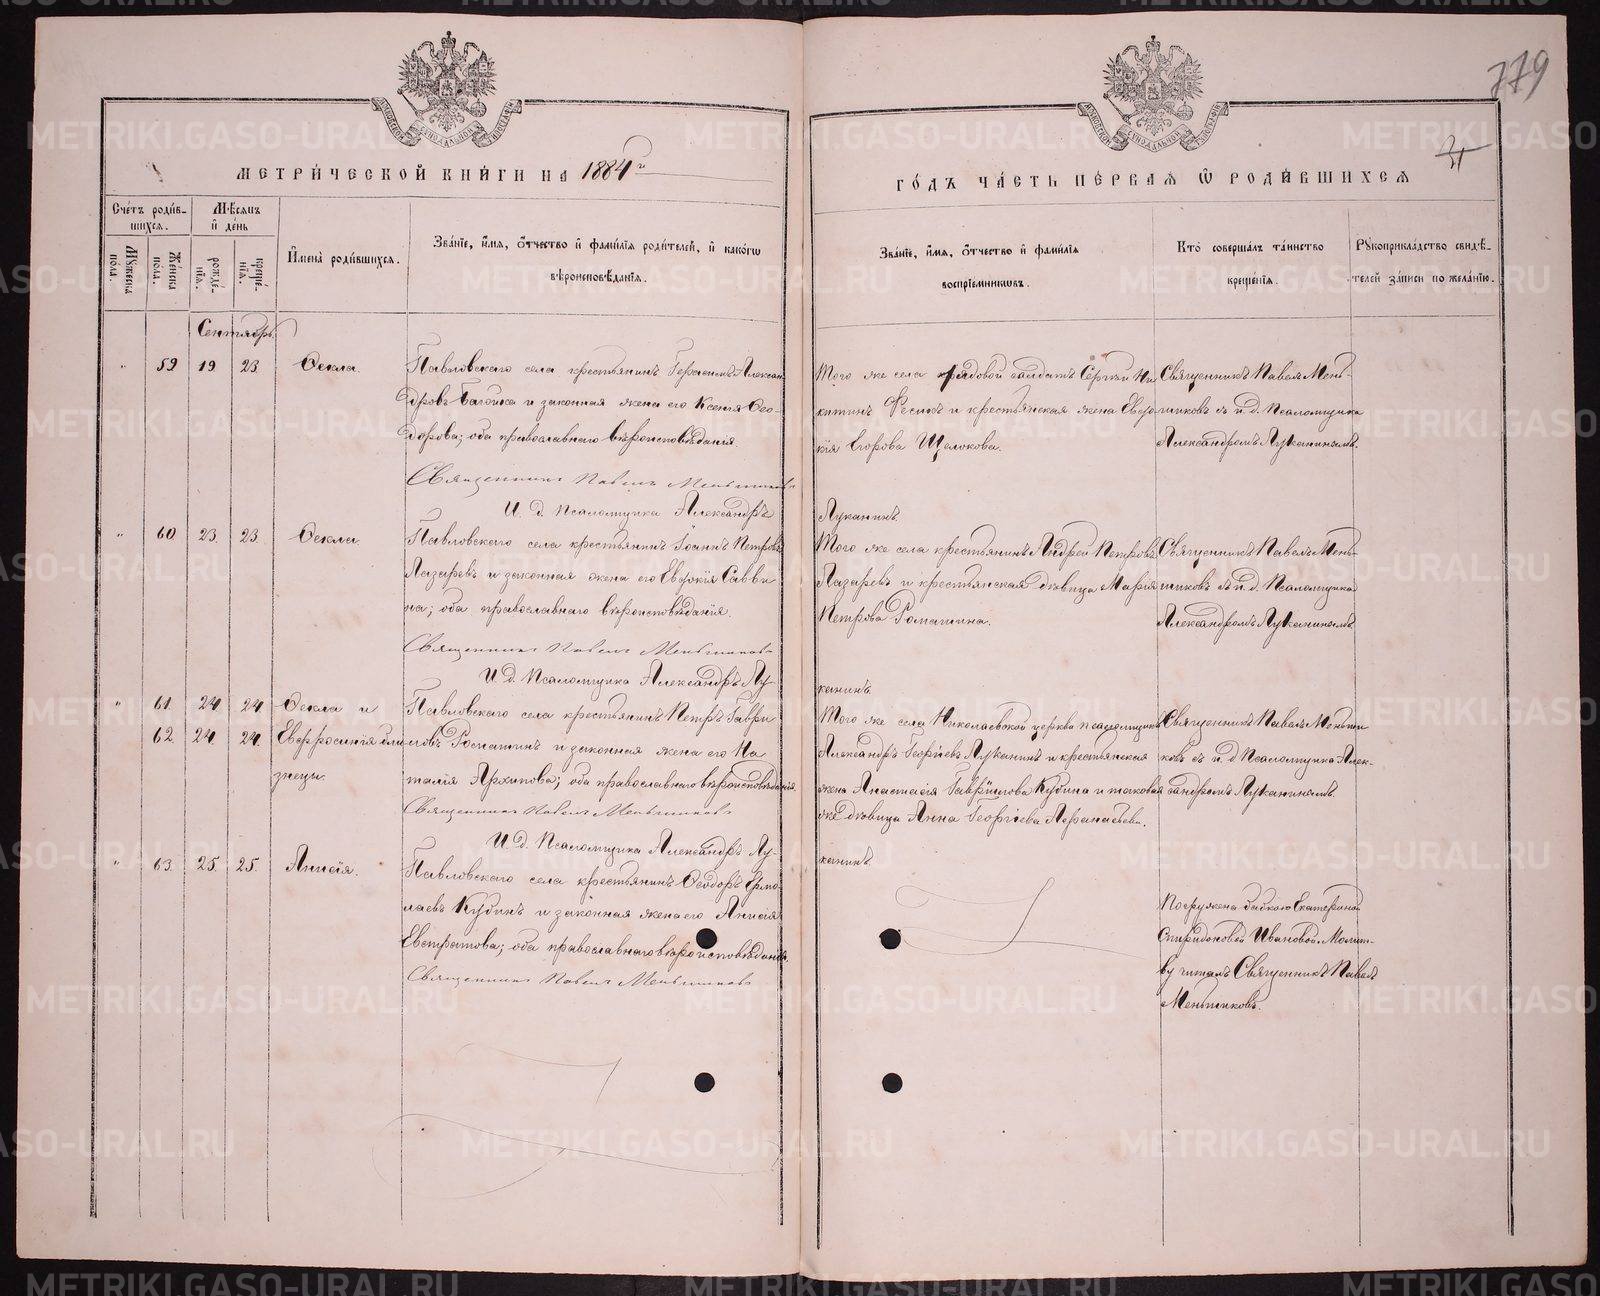 779
МОСКОВСКОЙ СѴНОДАЛЬНОЙ ТѴПОГРАФІИ
МОСКОВСКОЙ СѴНОДАЛЬНОЙ ТѴПОГРАФІИ
МЕТРИ́ЧЕСКОЙ КНИ́ГИ НА 1884й
ГО́ДЪ ЧА́СТЬ ПЕ́РВАЯ Ѿ РОДИ́ВШИХСЯ
Сче́тъ роди́в-
шихся.
Мѣ́сяцъ
и҆ де́нь
Му́жеска по́ла.
Же́нска по́ла.
рожде́-
нїя.
креще́-
нїя.
И҆мена̀ роди́вшихся.
Зва́нїе, и҆́мя, ѻ҆́тчество и҆ фами́лїя роди́телей, и҆ како́гѡ
вѣроисповѣ́данїя.
Зва́нїе, и҆́мя, ѻ҆́тчество и҆ фами́лїя
воспрїе́мникѡвъ.
Кто̀ соверша́лъ та́инство
креще́нїя.
Рꙋкоприкла́дство свидѣ́-
телей за́писи по жела́нїю.
Сентябрь
" 59 19 23 Ѳекла.
Павловскаго села крестьянинъ Герасимъ Алексан-
дровъ и законная жена его Ксенія Ѳео-
дорова; оба православнаго вѣроисповѣданія.
Священникъ Павелъ Меньшиковъ
И. д. Псаломщика Александръ
Того же села рядовой солдатъ Сергѣй Ни-
китинъ и крестьянская жена Евдо-
кія Егорова Щелокова.
Луканинъ.
Священникъ Павелъ Мень-
шиковъ съ и. д. Псаломщика
Александромъ Луканинымъ.
" 60 23 23 Ѳекла
Павловскаго села крестьянинъ Іоаннъ Петровъ
Лазаревъ и законная жена его Евдокія Савви-
на; оба православнаго вѣроисповѣданія.
Священникъ Павелъ Меньшиковъ
И. д. Псаломщика Александръ Лу-
Того же села крестьянинъ Андрей Петровъ
Лазаревъ и крестьянская дѣвица Марія
Петрова Ромашина.
канинъ.
Священникъ Павелъ Мень-
шиковъ съ и. д. Псаломщика
Александромъ Луканинымъ.
" 61 24 24 Ѳекла и
62 24 24 Евфросинія бли-
знецы.
Павловскаго села крестьянинъ Петръ Гаври-
ловъ Ромашинъ и законная жена его На-
талія Архипова; оба православнаго вѣроисповѣданія.
Священникъ Павелъ Меньшиковъ
И. д. Псаломщика Александръ Лу-
Того же села Николаевской церкви псаломщикъ
Александръ Георгіевъ Луканинъ и крестьянская
жена Анастасія Гавріилова Кубина и таковая
же дѣвица Анна Георгіева Аѳанасьева.
канинъ.
Священникъ Павелъ Меньши-
ковъ съ и. д. Псаломщика Алек-
сандромъ Луканинымъ.
" 63 25 25 Анисія.
Павловскаго села крестьянинъ Ѳеодоръ Ермо-
лаевъ Кубинъ и законная жена его Анисія
Евстратова; оба православнаго вѣроисповѣданія.
Священникъ Павелъ Меньшиковъ
Погружена бабкою Екатериной
Спиридоновой Ивановой. Молит-
ву читалъ Священникъ Павелъ
Меньшиковъ.
METRIKI.GASO-URAL.RU